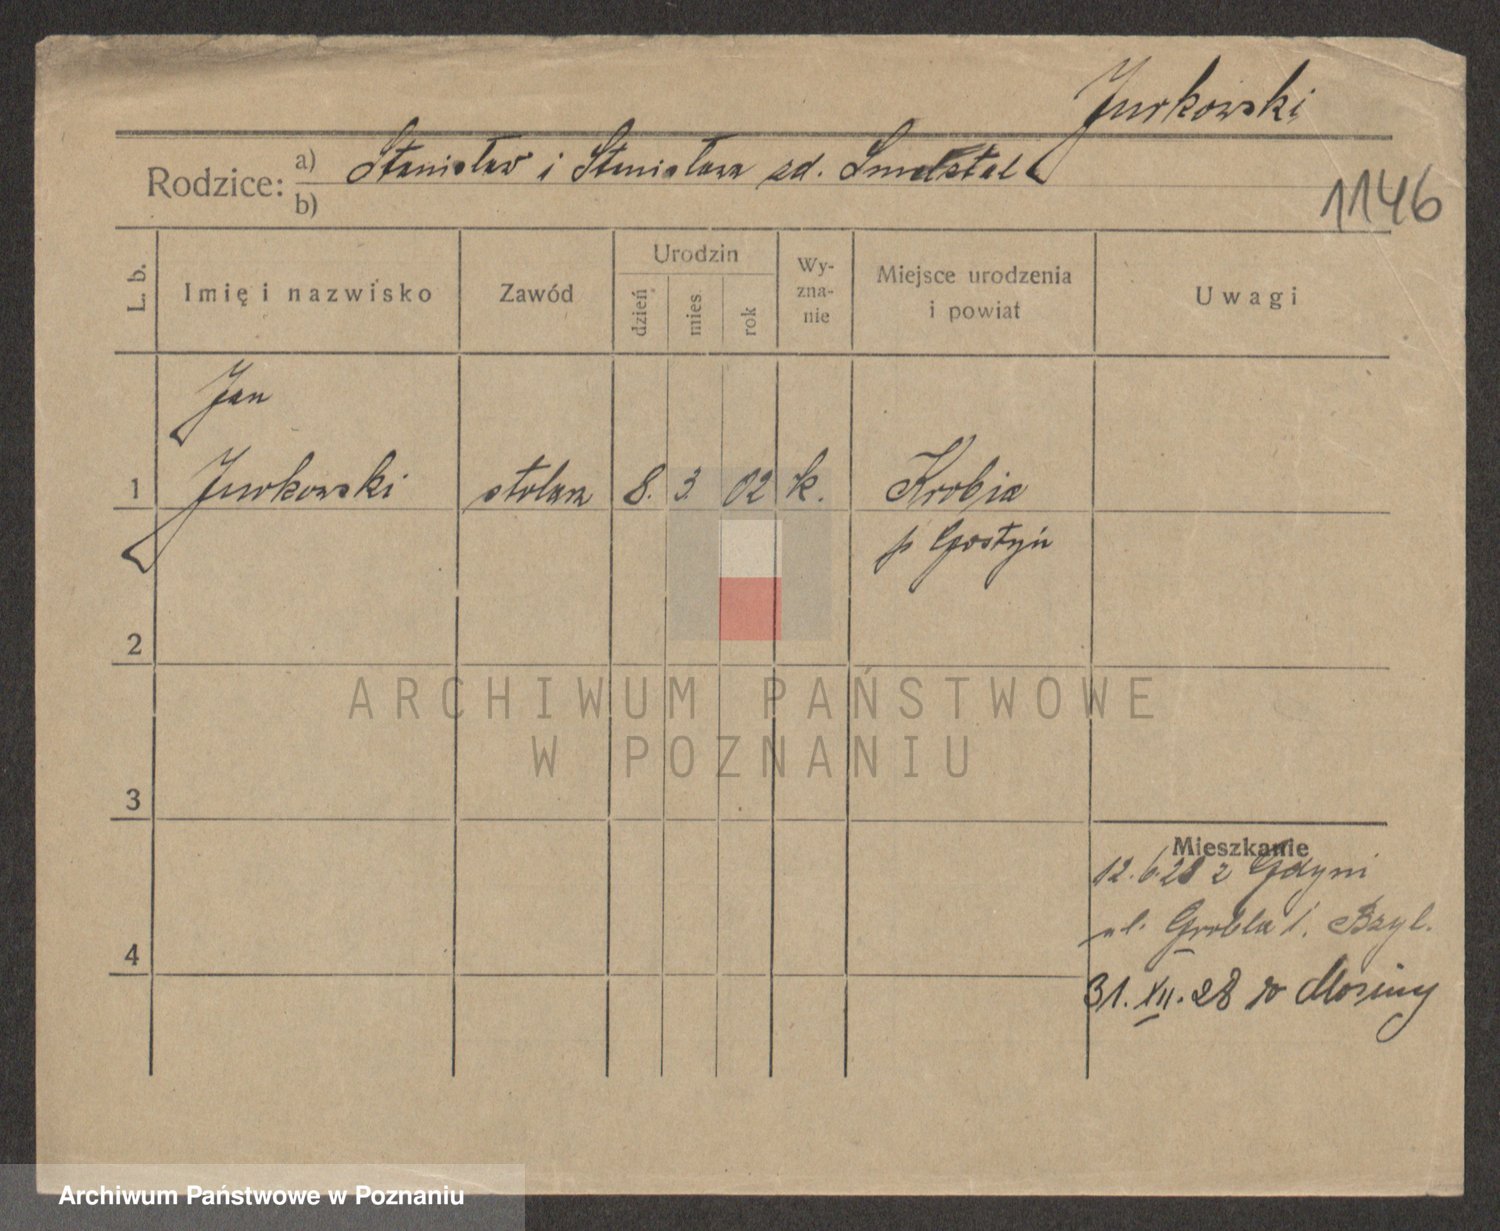 Jurkowski
Rodzice: a) Stanisław i Stanisława zd.
b)
1146
L. b.
Imię i nazwisko
Zawód
Urodzin
dzień
mies
rok
Wy-
zna-
nie
Miejsce urodzenia
i powiat
Uwagi
Jan
1 Jurkowski stolarz 8. 3. 02 k. Krobia
p Gostyń
2
ARCHIWUM PAŃSTWOWE
W POZNANIU
3
Mieszkanie
12.6.28 z Gdyni
ul. Grobla 1.
4
31.XII.28 do Mosiny
Archiwum Państwowe w Poznaniu